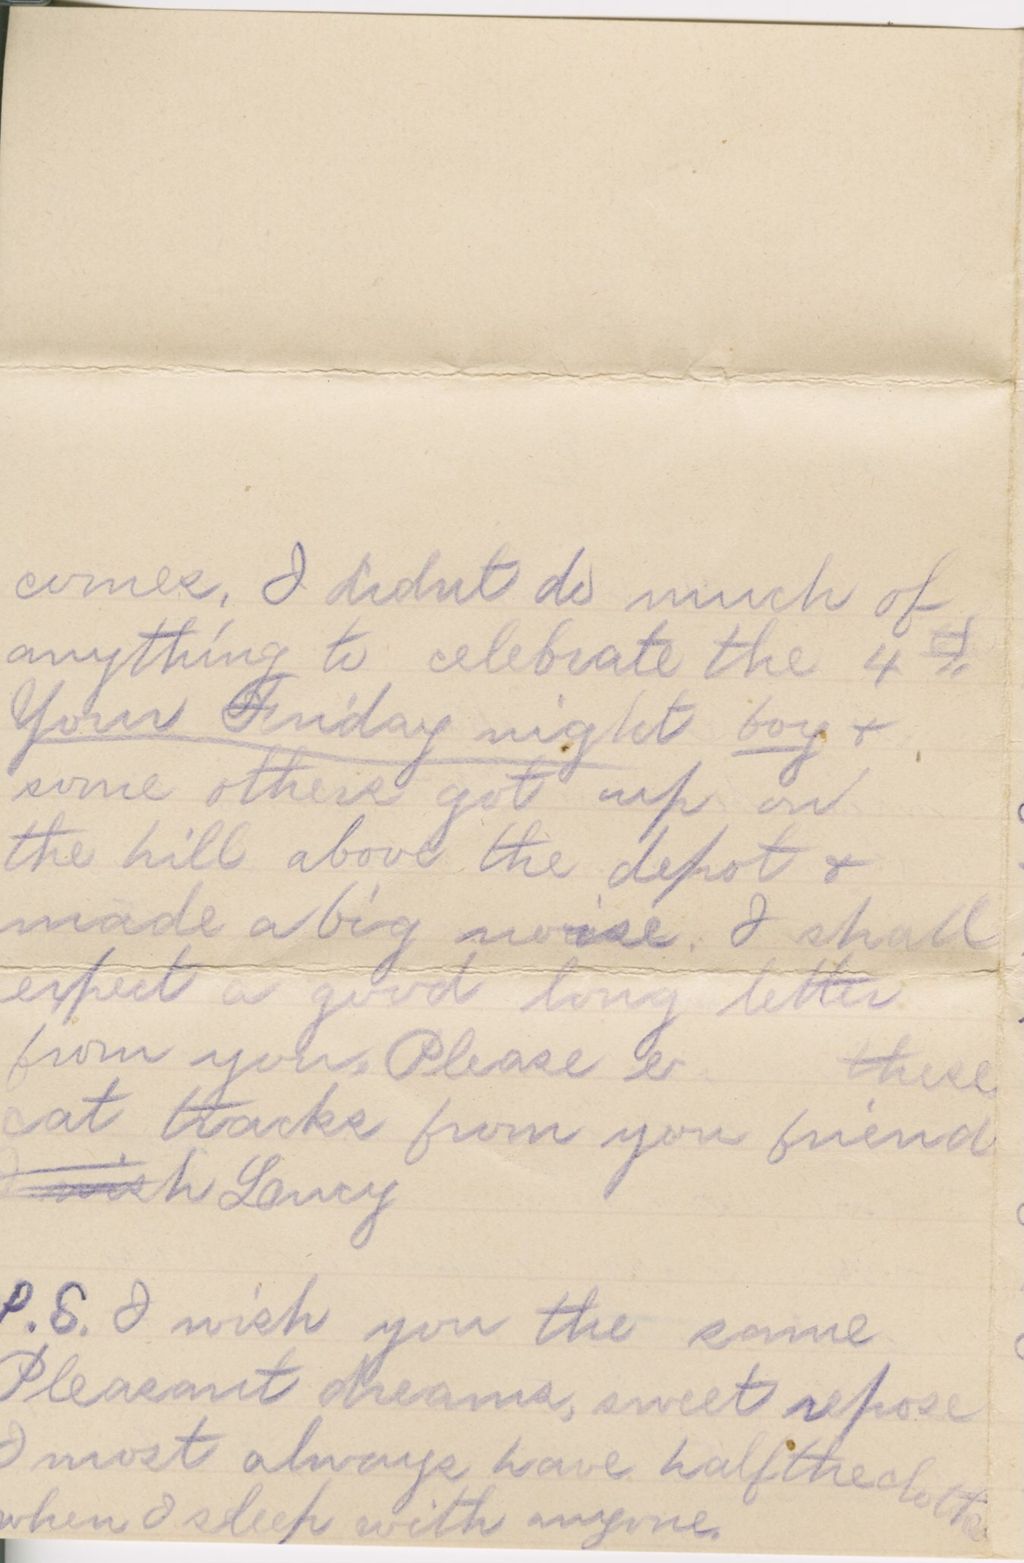 comes, I didnt do much of
anything to celebrate the 4th
Your Friday night boy &
some others got up on
the hill above the depot &
made a big noise. I shall
expect a good long letter
from you, Please these
cat tracks from you friend
Lucy
P.S. I wish you the same
Pleasant dreams, sweet repose
I most always have half the clothes
when I sleep with anyone.